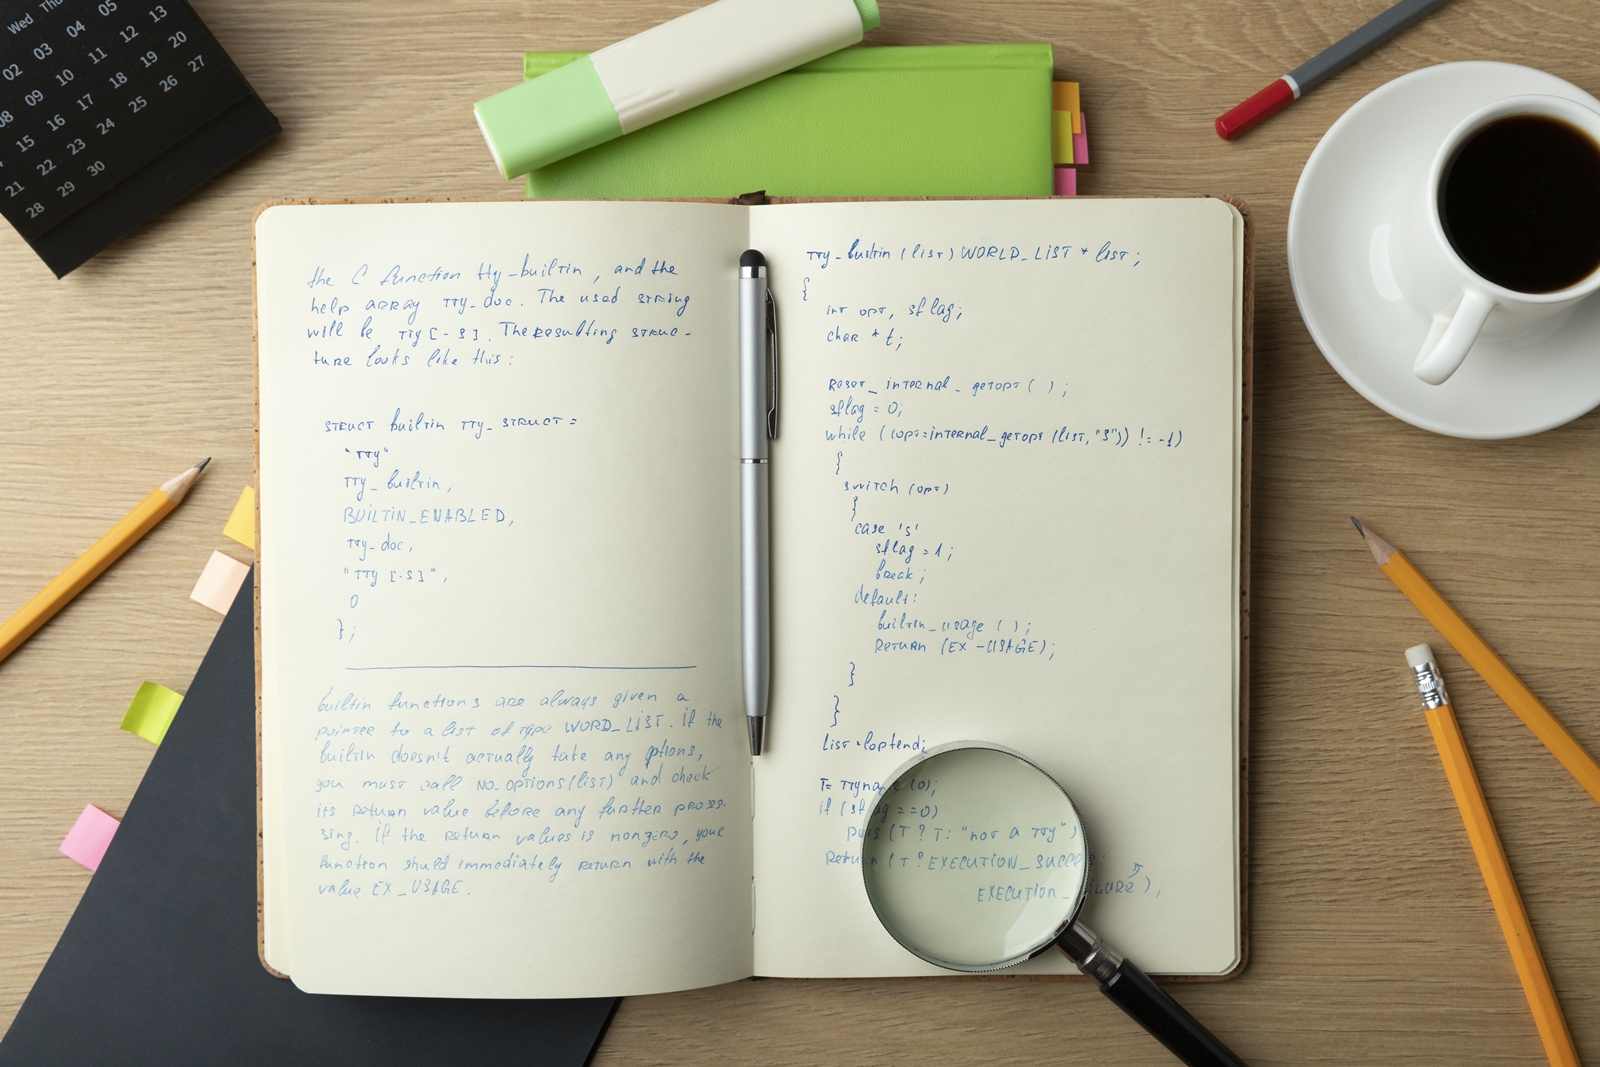 Wed Thu
02 03 04 05
08 09 10 11 12 13
15 16 17 18 19 20
21 22 23 24 25 26 27
28 29 30
the C function tty_builtin, and the
help array tty_doc. The used string
will be tty [-s]. The resulting struc-
ture looks like this:
struct builtin tty_struct =
"tty"
tty_builtin,
BUILTIN_ENABLED,
tty_doc,
"tty [-s]",
0
};
builtin functions are always given a
pointer to a list of type WORD_LIST. if the
builtin doesn't actually take any ptions,
you must call no_options(list) and check
its return value before any further proses-
sing. if the return values is nonzero, your
function shuld immediately return with the
value EX_USAGE.
tty_builtin (list) WORLD_LIST * list;
{
int opt, sflag;
char * t;
reset_internal_getopt ( );
sflag = 0;
while ((opt=internal_getopt (list, "s")) != -1)
{
switch (opt)
{
case 's'
sflag = 1;
break;
default:
builtin_usage ( );
return (EX-USAGE);
}
}
list = loptend;
t= ttyname (0);
if (sflag ==0)
puts (t ? t: "not a tty")
Return (t ? EXECUTION_SUCCESS:
EXECUTION_FAILURE);